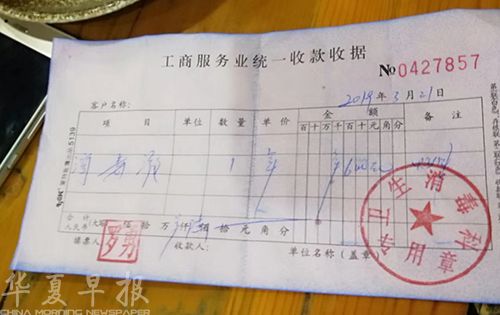 工商服务业统一收款收据
№0427857
2019年3月21日
客户名称：
项目 单位 数量 单价 金额 备注
百十万千百十元角分
消毒 1 年 600
合计
人民币(大写) 佰 拾 万 仟 佰 拾 元 角 分
填票人： 罗勇 收款人： 单位名称（盖章）
卫生消毒科
专用章
5139
华夏早报
CHINA MORNING NEWSPAPER